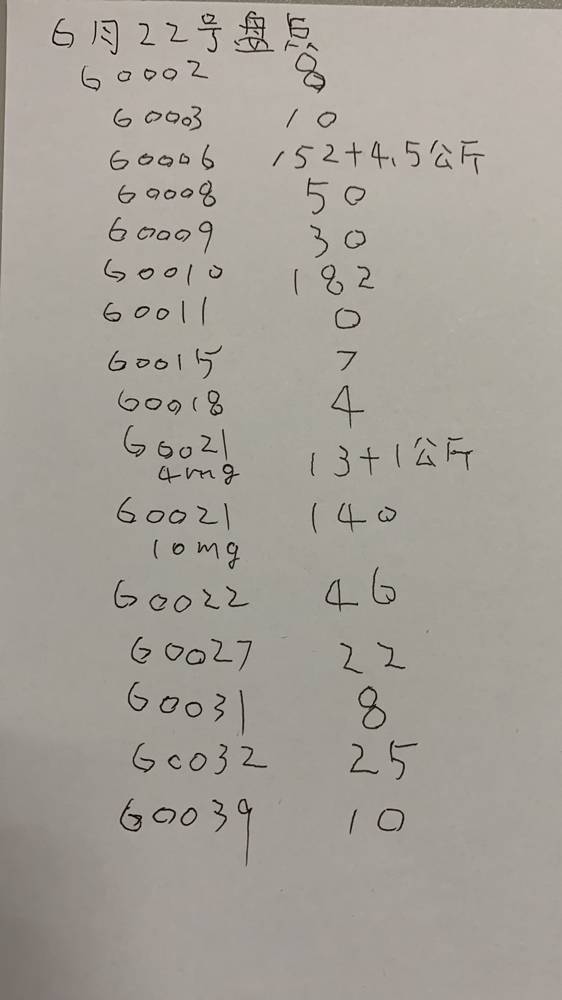 6月22号盘点
60002 8
60003 10
60006 152+4.5公斤
60008 50
60009 30
60010 182
60011 0
60015 7
60018 4
60021 13+1公斤
4mg
60021 140
10mg
60022 46
60027 22
60031 8
60032 25
60039 10